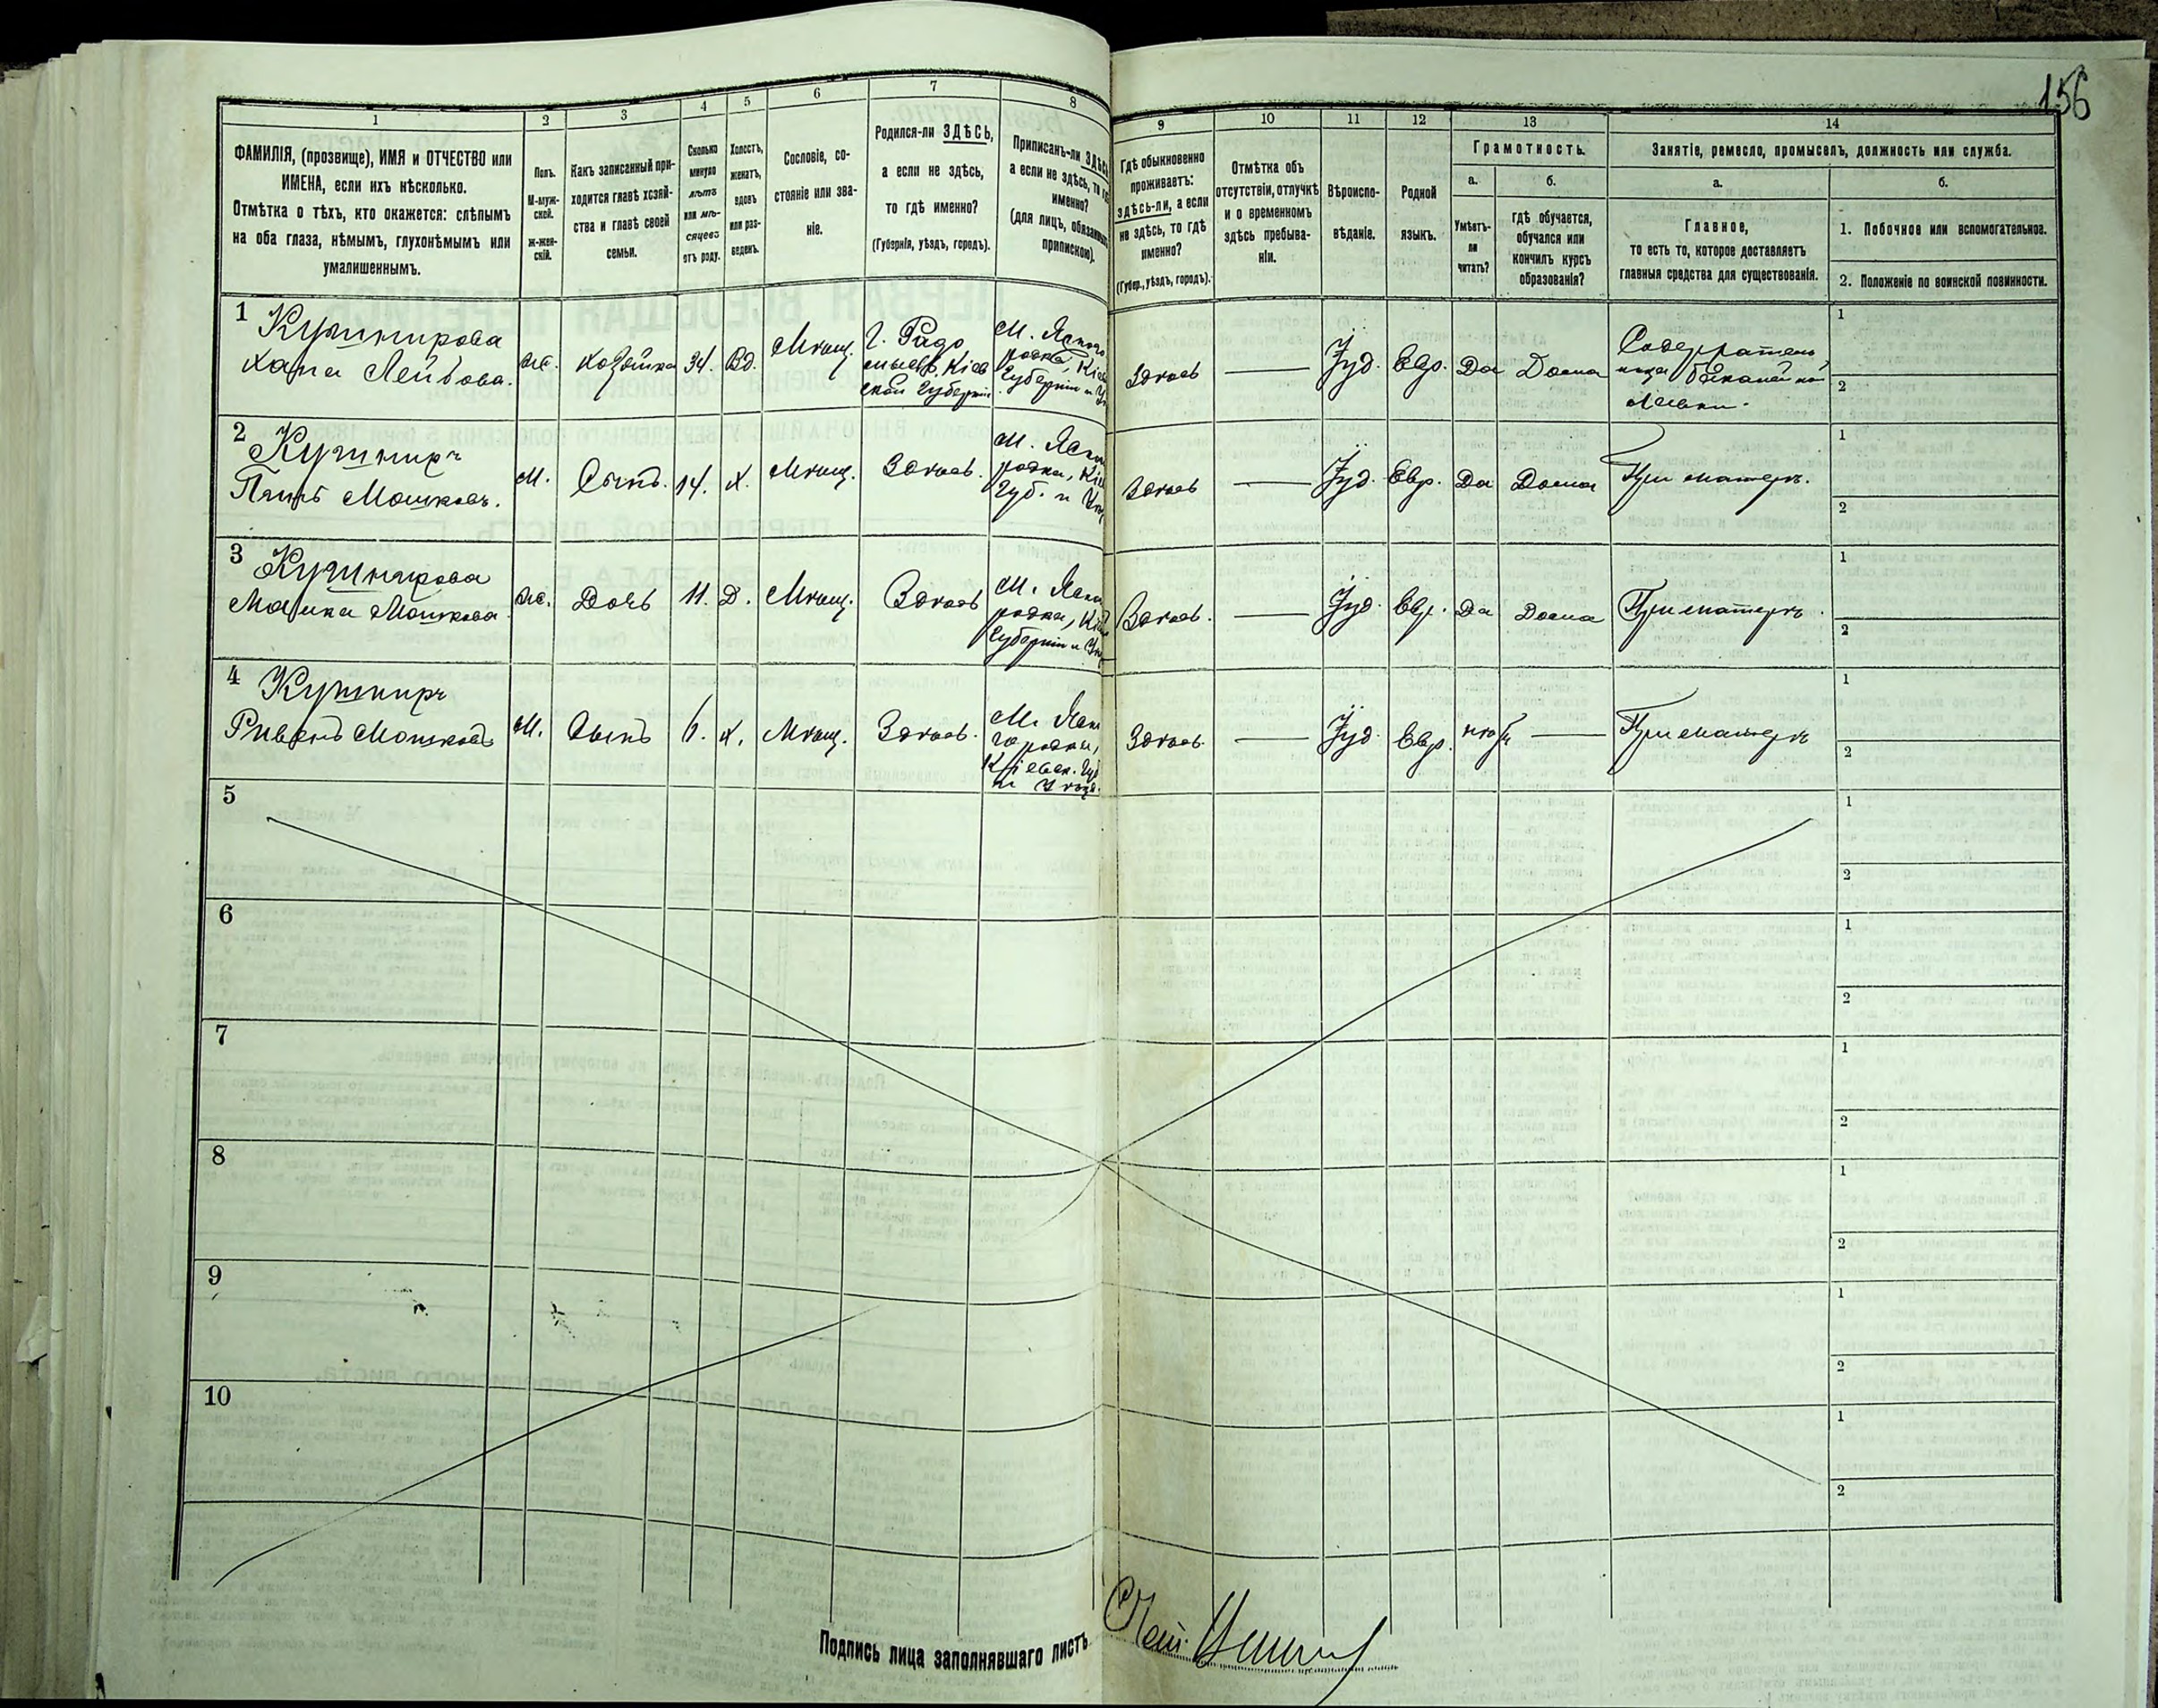 156
1
2
3
4
5
6
7
8
9
10
11
12
13
14
ФАМИЛІЯ, (прозвище), ИМЯ и ОТЧЕСТВО или
ИМЕНА, если ихъ нѣсколько.
Отмѣтка о тѣхъ, кто окажется: слѣпымъ
на оба глаза, нѣмымъ, глухонѣмымъ или
умалишеннымъ.
Полъ.
М-муж-
ской.
ж-жен-
скій.
Какъ записанный при-
ходится главѣ хозяй-
ства и главѣ своей
семьи.
Сколько
минуло
лѣтъ
или мѣ-
сяцевъ
отъ роду.
Холостъ,
женатъ,
вдовъ
или раз-
веденъ.
Сословіе, со-
стояніе или зва-
ніе.
Родился-ли ЗДѢСЬ,
а если не здѣсь,
то гдѣ именно?
(Губернія, уѣздъ, городъ).
Приписанъ-ли ЗДѢСЬ
а если не здѣсь, то
именно?
(для лицъ, обязанныхъ
припискою).
Гдѣ обыкновенно
проживаетъ:
здѣсь-ли, а если
не здѣсь, то гдѣ
именно?
(Губер., уѣздъ, городъ).
Отмѣтка объ
отсутствіи, отлучкѣ
и о временномъ
здѣсь пребыва-
ніи.
Вѣроиспо-
вѣданіе.
Родной
языкъ.
Грамотность.
а.
Умѣетъ-
ли
читать?
б.
гдѣ обучается,
обучался или
кончилъ курсъ
образованія?
Занятіе, ремесло, промыселъ, должность или служба.
а.
Главное,
то есть то, которое доставляетъ
главныя средства для существованія.
б.
1. Побочное или вспомогательное.
2. Положеніе по воинской повинности.
1
Кушнирова
Хана Лейбова.
Ж.
Хозяйка
34.
Вд.
Мѣщ.
Г. Радо
мысль, Кіев
ской Губерніи
М.
родка, Кіев
Губерніи и
Здѣсь
Іуд.
Евр.
Да
Дома
Содержатель
ница бакалейной
лавки.
1
2
2
Кушниръ
Мошковъ.
М.
Сынъ.
14.
Х.
Мѣщ.
Здѣсь.
М.
родка, Кіе
Губ. и
Здѣсь
Іуд.
Евр.
Да
Дома
При матери.
1
2
3
Кушнирова
Мошкова
Ж.
Дочь
11.
Д.
Мѣщ.
Здѣсь
М.
родка, Кіе
Губерніи и
Здѣсь.
Іуд.
Евр.
Да
Дома
При матери.
1
2
4
Кушниръ
Мошковъ
М.
Сынъ
6.
Х.
Мѣщ.
Здѣсь.
М. Ясно
городки,
Кіевск. Губ
и Уѣзд.
Здѣсь.
Іуд.
Евр.
нѣтъ
При матери
1
2
5
1
2
6
1
2
7
1
2
8
1
2
9
1
2
10
1
2
Подпись лица заполнявшаго листъ